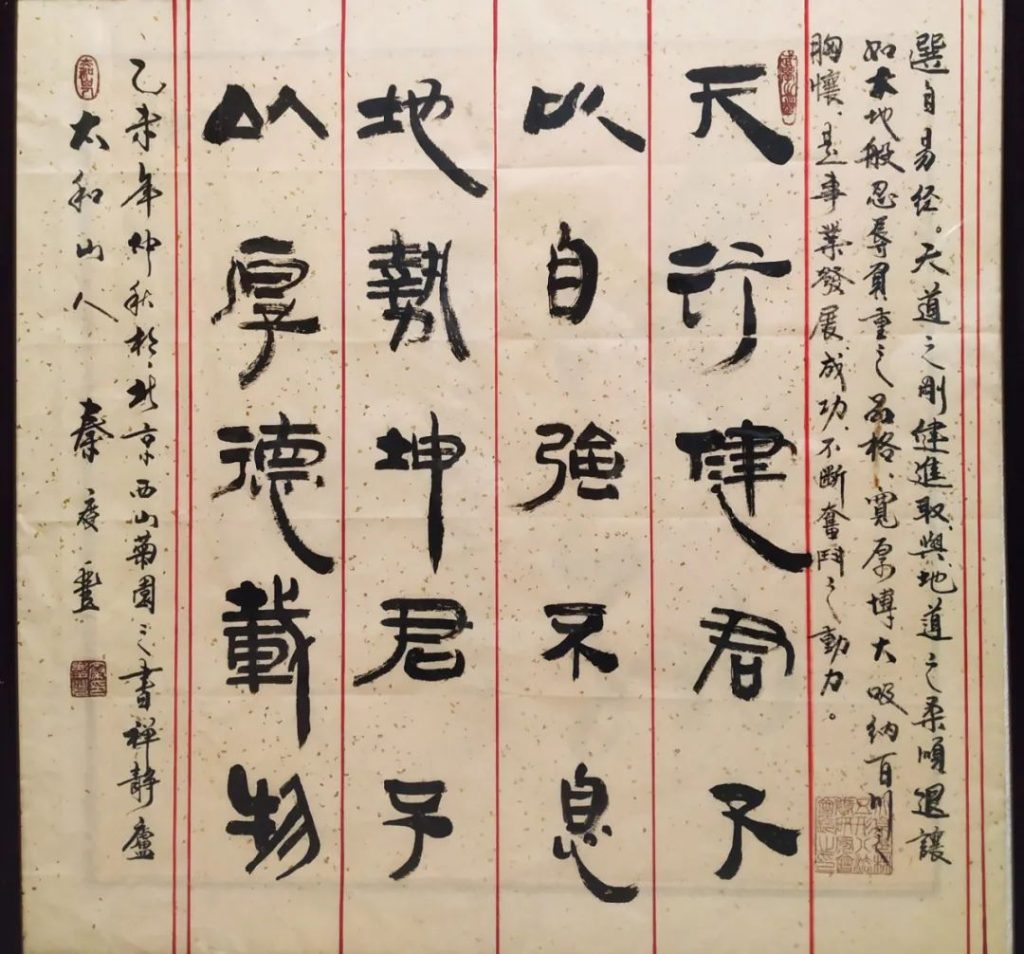 選自易经。天道之刚健進取與地道之柔順退讓
如大地般忍辱負重之品格、寬厚博大吸納百川之
胸懷、是事業發展成功、不斷奮鬥之動力。
天行健君子
以自強不息
地勢坤君子
以厚德載物
乙未年仲秋於北京西山菊園之書禅静廬
太和山人 秦